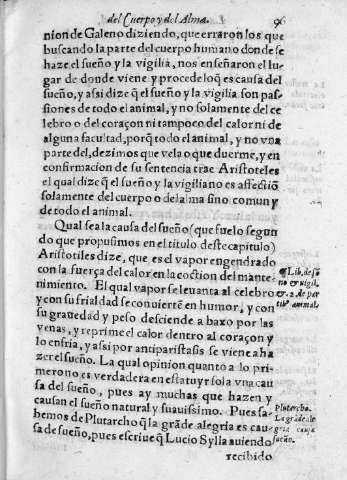 del Cuerpo y del Alma. 96
nion de Galeno diziendo, que erraron los que
buscando la parte del cuerpo humano donde se
haze el sueño y la vigilia, nos enseñaron el lu-
gar de donde viene y procede lo q̃ es causa del
sueño, y assi dize q̃ el sueño y la vigilia son pas-
siones de todo el animal, y no solamente del ce
lebro o del coraçon ni tampoco del calor ni de
alguna facultad, porq̃ todo el animal, y no vna
parte del, dezimos que vela o que duerme, y en
confirmacion de su sentencia trae Aristoteles
el qual dize q̃ el sueño y la vigilia no es affectiõ
solamente del cuerpo o del alma sino comun y
de todo el animal.
Qual sea la causa del sueño (que fue lo segun
do que propusimos en el titulo deste capitulo)
Aristotiles dize, que es el vapor engendrado
con la fuerça del calor en la coction del mante-
nimiento. El qual vapor se leuanta al celebro
y con su frialdad se conuierte en humor, y con
su grauedad y peso desciende a baxo por las
venas, y reprime el calor dentro al coraçon y
lo enfria, y assi por antiparistasis se viene a ha
zer el sueño. La qual opinion quanto a lo pri-
mero no es verdadera en estatuyr sola vna cau
sa del sueño, pues ay muchas que hazen y
causan el sueño natural y suauissimo. Pues sa-
bemos de Plutarcho q̃ la grãde alegria es cau-
sa de sueño, pues escriue q̃ Lucio Sylla auiendo
recibido
Lib. de sũ
no et vigil.
et. 2. de par
tib' animal.
Plutarcho.
La grãde ale
gria causa
sueño.